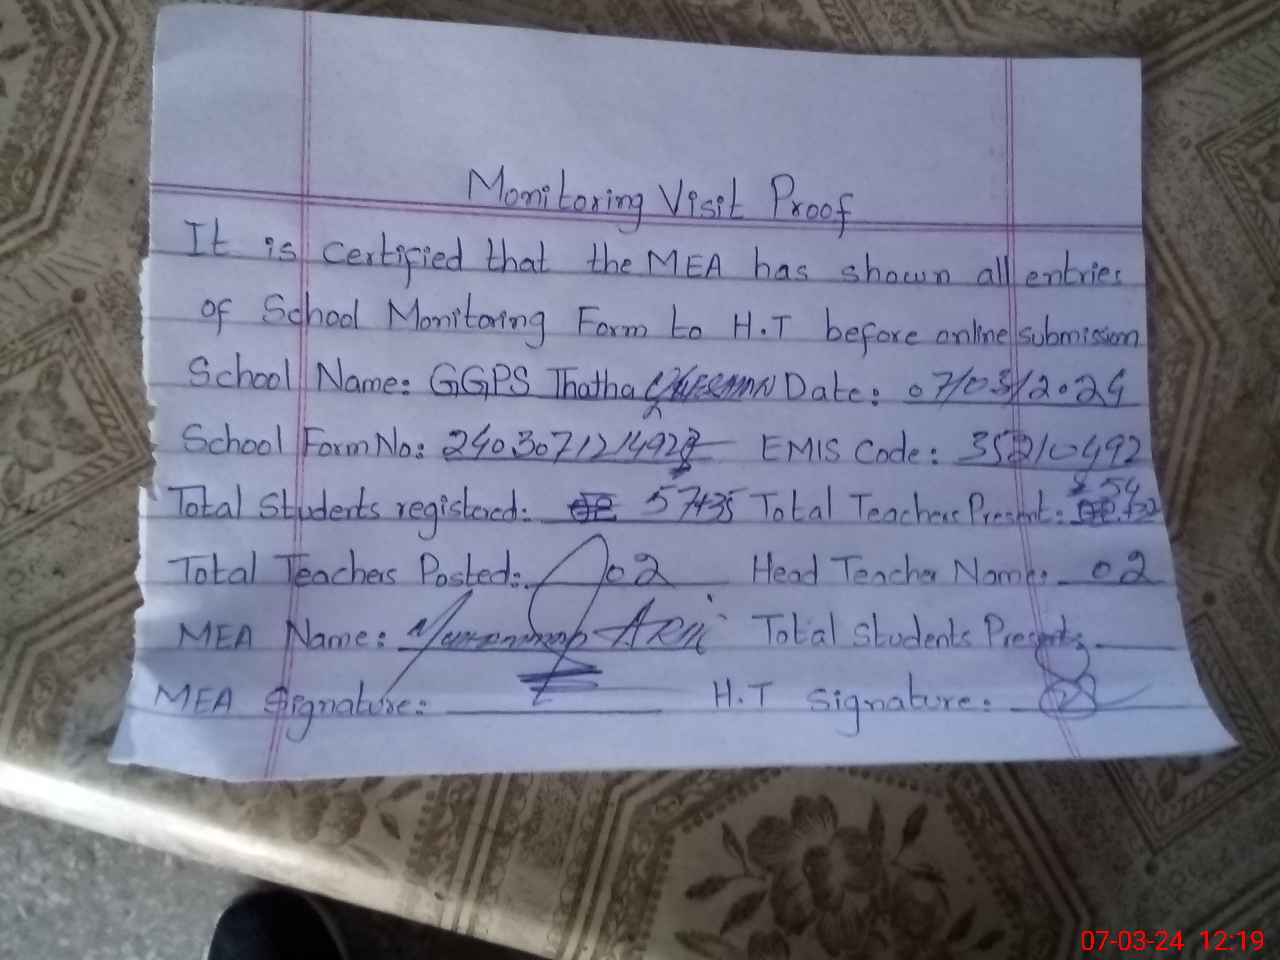 Monitoring Visit Proof
It is certified that the MEA has shown all entries
of School Monitoring Form to H.T before online submission
School Name: GGPS Thatha Date: 07/03/2024
School Form No: EMIS Code: 35210492
Total Students registered: 57+35 Total Teachers Present: 54
Total Teachers Posted: 02 Head Teacher Name: 02
MEA Name: Total Students Present:
MEA Signature: H.T Signature:
07-03-24 12:19